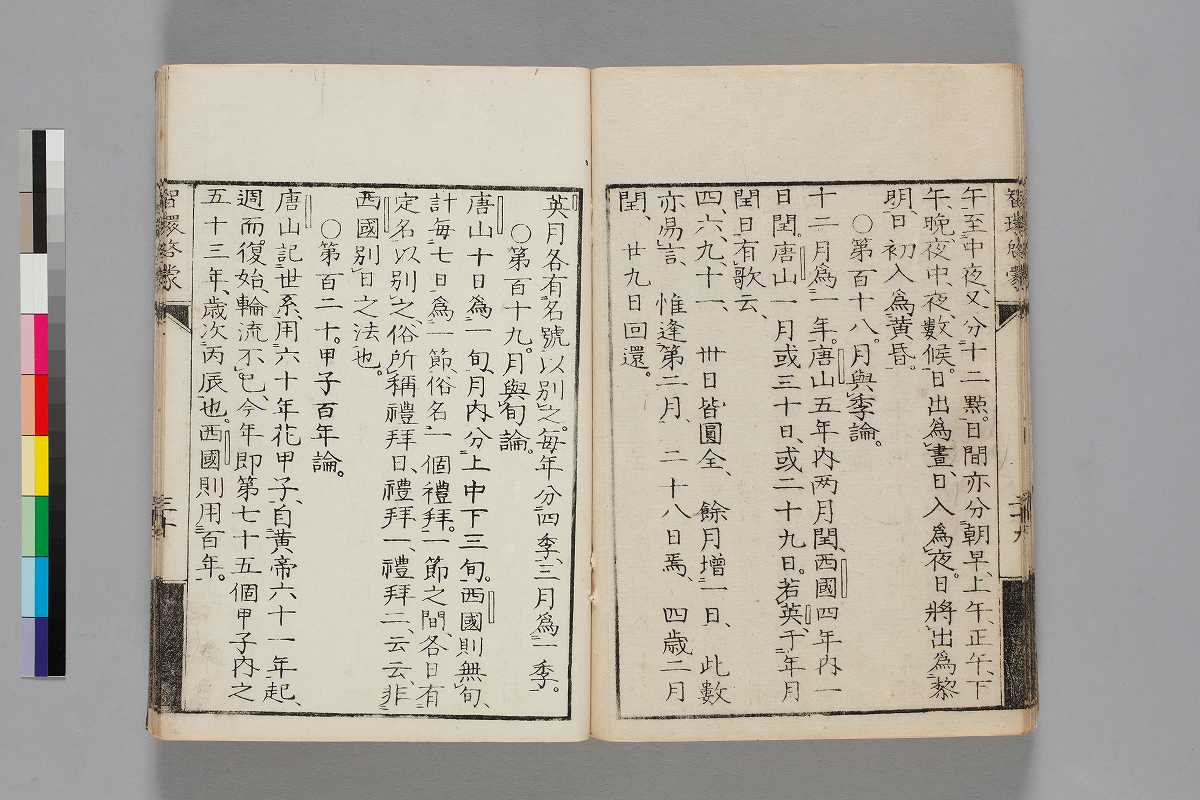 午至中夜、又分十二點。日間亦分朝早、上午、正午、下
午、晚、夜中、夜、數候。日出爲晝、日入爲夜。日將出爲黎
明、日初入爲黄昏。
〇第百十八。月與季論。
十二月爲一年。唐山五年内两月閏、西國四年内一
日閏。唐山一月或三十日、或二十九日。若英、于年月
閏日有歌云、
四、六、九、十一、 卅日皆圓全、 餘月增一日、 此數
亦易言、 惟逢第二月、 二十八日焉、 四歲二月
閏、 廿九日回還。
英月各有名號以別之。每年分四季、三月爲一季。
〇第百十九。月與旬論。
唐山十日爲一旬、月内分上中下三旬。西國則無旬、
計每七日爲一節、俗名一個禮拜。一節之間、各日有
定名以別之、俗所稱禮拜日、禮拜一、禮拜二、云云、非
西國別日之法也。
〇第百二十。甲子百年論。
唐山記世系、用六十年花甲子、自黄帝六十一年起、
週而復始、輪流不已、今年即第七十五個甲子内之
五十三年、歲次丙辰也。西國則用百年。
智環啓蒙
二十九
智環啓蒙
三十